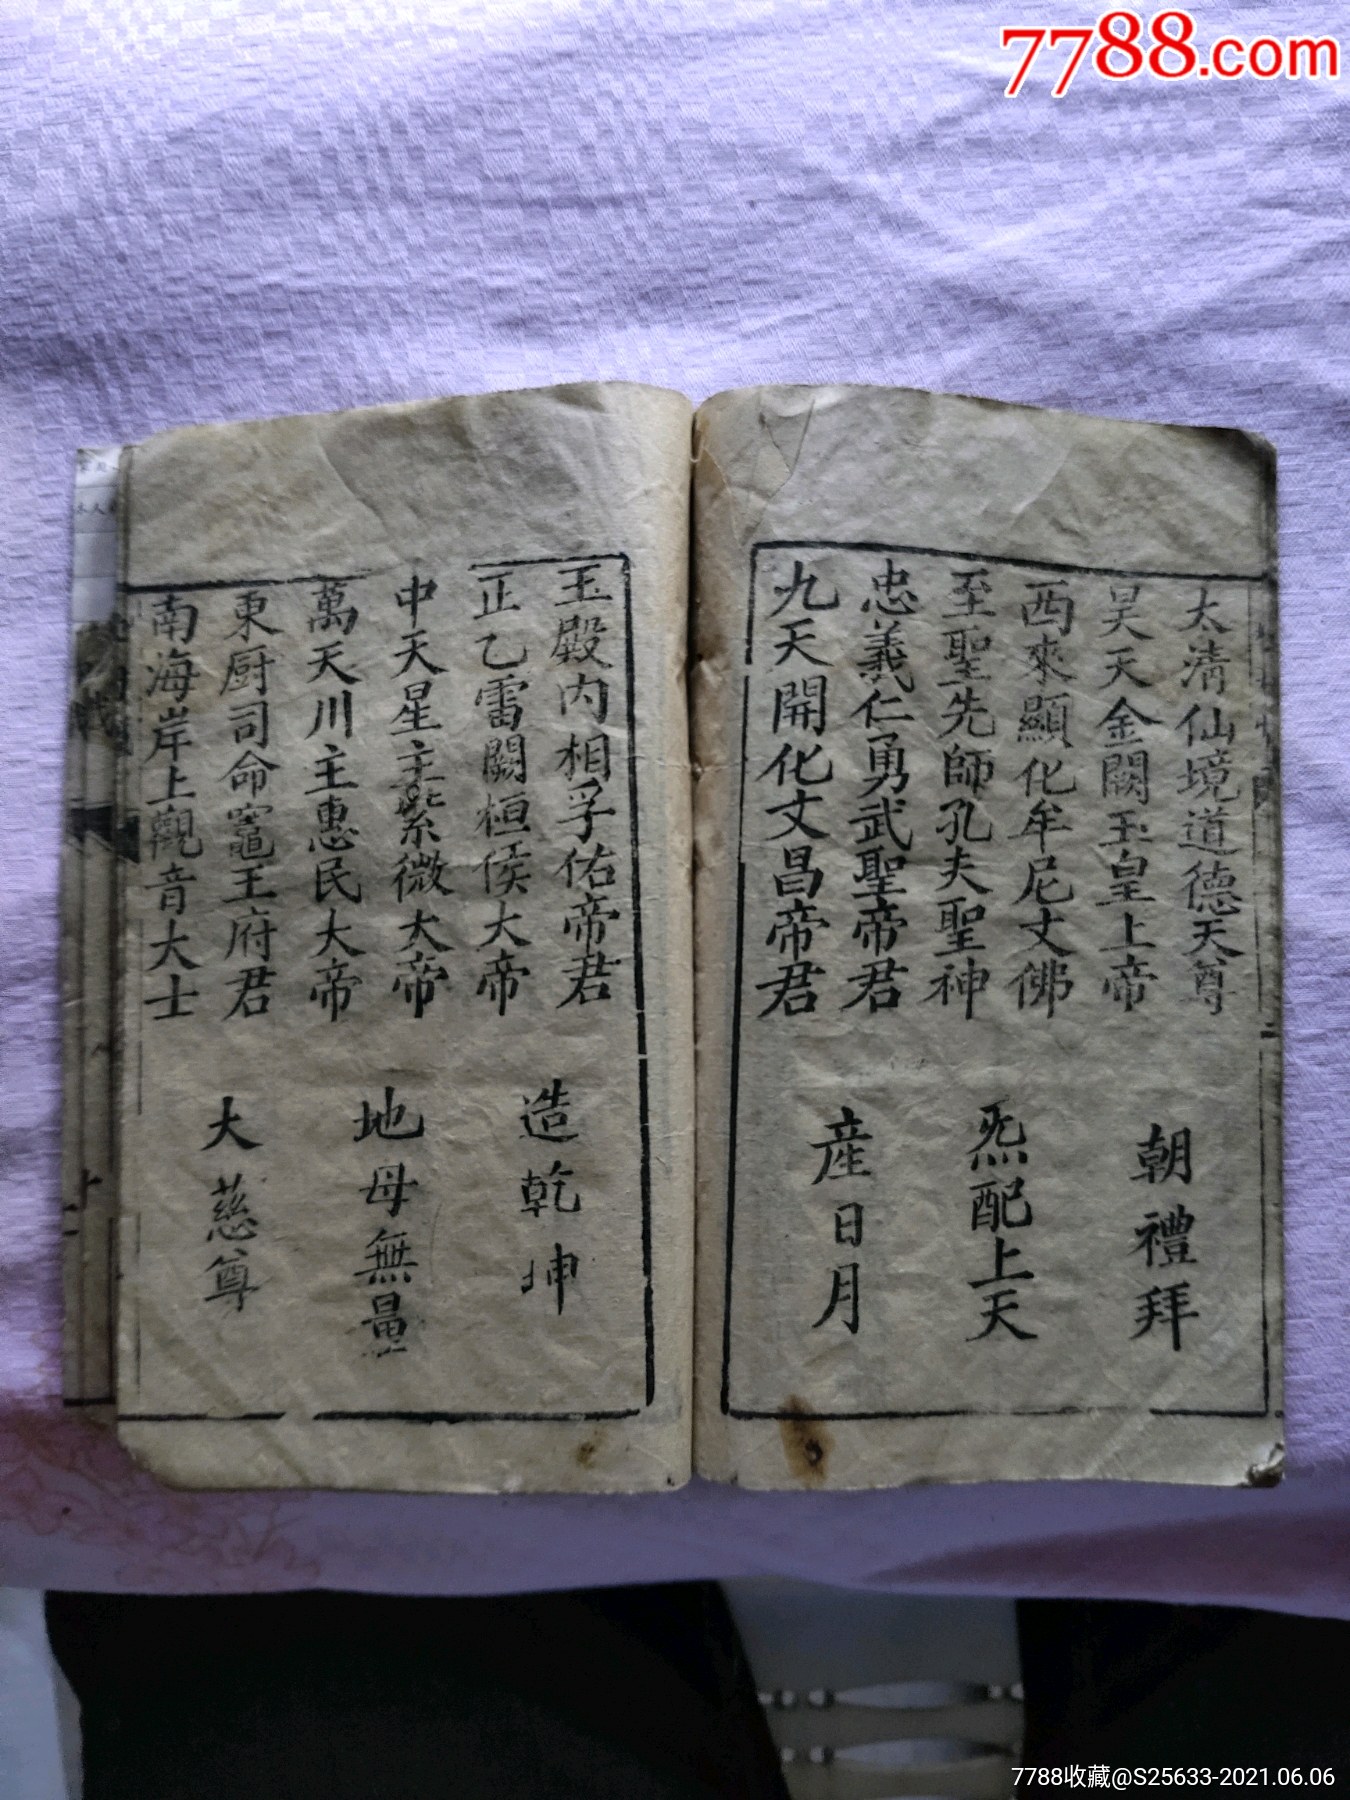 7788.com
太清仙境道德天尊
昊天金闕玉皇上帝
朝禮拜
西來顯化牟尼文佛
至聖先師孔夫聖神
炁配上天
忠義仁勇武聖帝君
九天開化文昌帝君
産日月
玉殿内相孚佑帝君
正乙雷闕桓侯大帝
造乾坤
中天星主紫微大帝
萬天川主惠民大帝
地母無量
東厨司命竈王府君
南海岸上觀音大士
大慈尊
7788收藏@S25633-2021.06.06